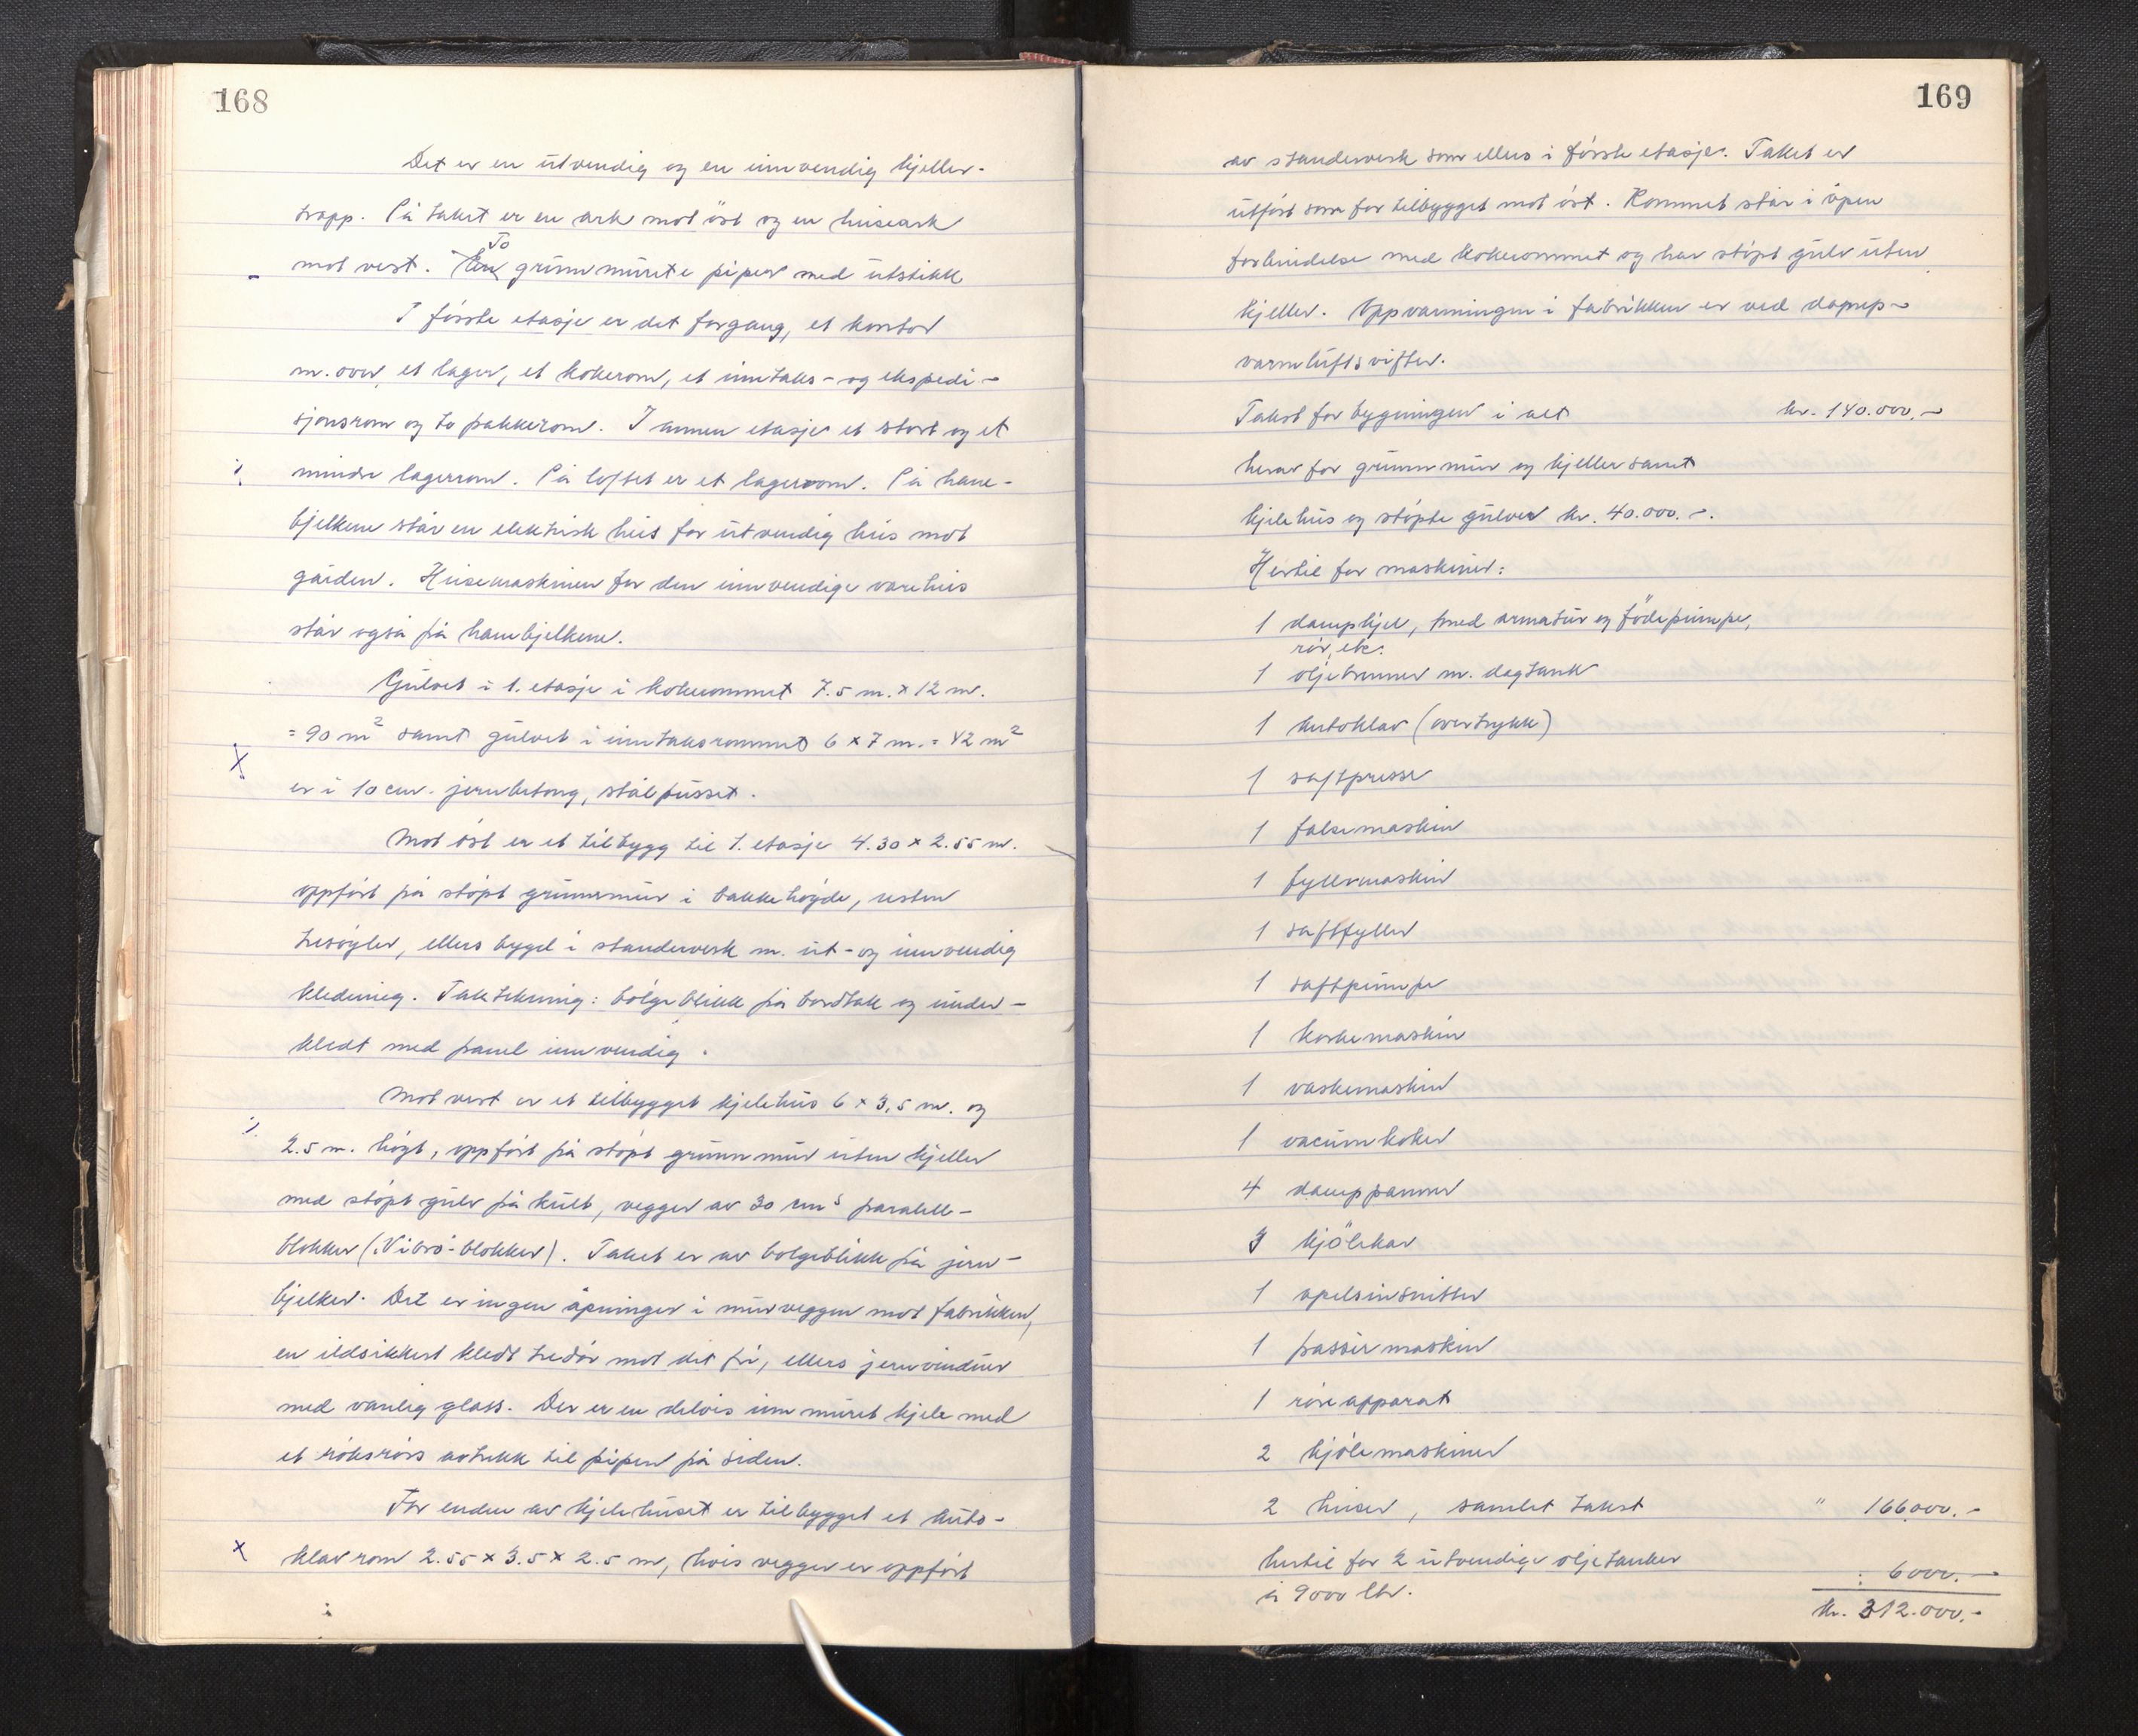 168
Det er en utvendig og en innvendig kjeller-
trapp. På taket er en ark mot öst og en heiseark
To
mot vest. En grunnmurte piper med utstikk
I förste etasje er det forgang, et kontor
m. ovn, et lager, et kokerom, et inntaks- og ekspedi-
sjonsrom og to pakkerom. I annen etasje et stort og et
mindre lagerrom. På loftet er et lagerrom. På hane-
bjelkene står en elektrisk heis for utvendig heis mot
gården. Heisemaskinen for den innvendige vareheis
står også på hanebjelkene.
Gulvet i 1. etasje i kokerommet 7.5 m. x 12 m.
= 90 m² samt gulvet i inntaksrommet 6 x 7 m. = 42 m²
X
er i 10 cm. jernbetong, stålpusset.
Mot öst er et tilbygg til 1. etasje 4.30 x 2.55 m.
oppfört på stöpt grunnmur i bakkehöyde, resten
tresöyler, ellers bygd i standerverk m. ut- og innvendig
kledning. Taktekning: bölgeblikk på bordtak og under-
kledt med panel innvendig.
Mot vest er et tilbygget kjelehus 6 x 3,5 m. og
2.5 m. högt, oppfört på stöpt grunnmur uten kjeller
med stöpt gulv på kult, vegger av 30 cm's paralell-
blokker (Vibro-blokker). Taket er av bölgeblikk på jern-
bjelker. Det er ingen åpninger i murveggen mot fabrikken,
en ildsikkert kledt tredör mot det fri, ellers jernvinduer
med vanlig glass. Der er en delvis innmuret kjele med
et röksrörs avtrekk til pipen på siden.
For enden av kjelehuset er tilbygget et auto-
x klavrom 2.55 x 3.5 x 2.5 m, hvis vegger er oppfört
169
av standerverk som ellers i förste etasje. Taket er
utfört som for tilbygget mot öst. Rommet står i åpen
forbindelse med kokerommet og har stöpt gulv uten
kjeller. Oppvarmingen i fabrikken er ved damp-
varmluftsvifter.
Takst for bygningen i alt kr. 140.000.-
herav for grunnmur og kjeller samt
kjelehus og stöpte gulver kr. 40.000.-.
Hertil for maskiner:
1 dampkjel, med armatur og födepumpe,
rör, etc.
1 oljebrenner m. dagtank
1 Autoklav (overtrykk)
1 saftpresse
1 falsemaskin
1 fyllemaskin
1 saftfyller
1 saftpumpe
1 korkemaskin
1 vaskemaskin
1 vacumkoker
4 damppanner
3 kjölekar
1 apelsinsnitter
1 passermaskin
1 röreapparat
2 kjölemaskiner
2 heiser, samlet takst " 166.000.-
hertil for 2 utvendige oljetanker
à 9000 ltr. : 6000.-
kr. 312.000.-